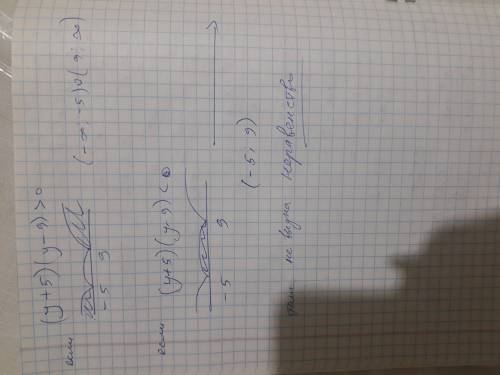 если (y+5)(y-9)>0
-5 9 (-∞; -5)∪(9; ∞)
если (y+5)(y-9)<0
-5 9
(-5; 9)
не видна неравенства